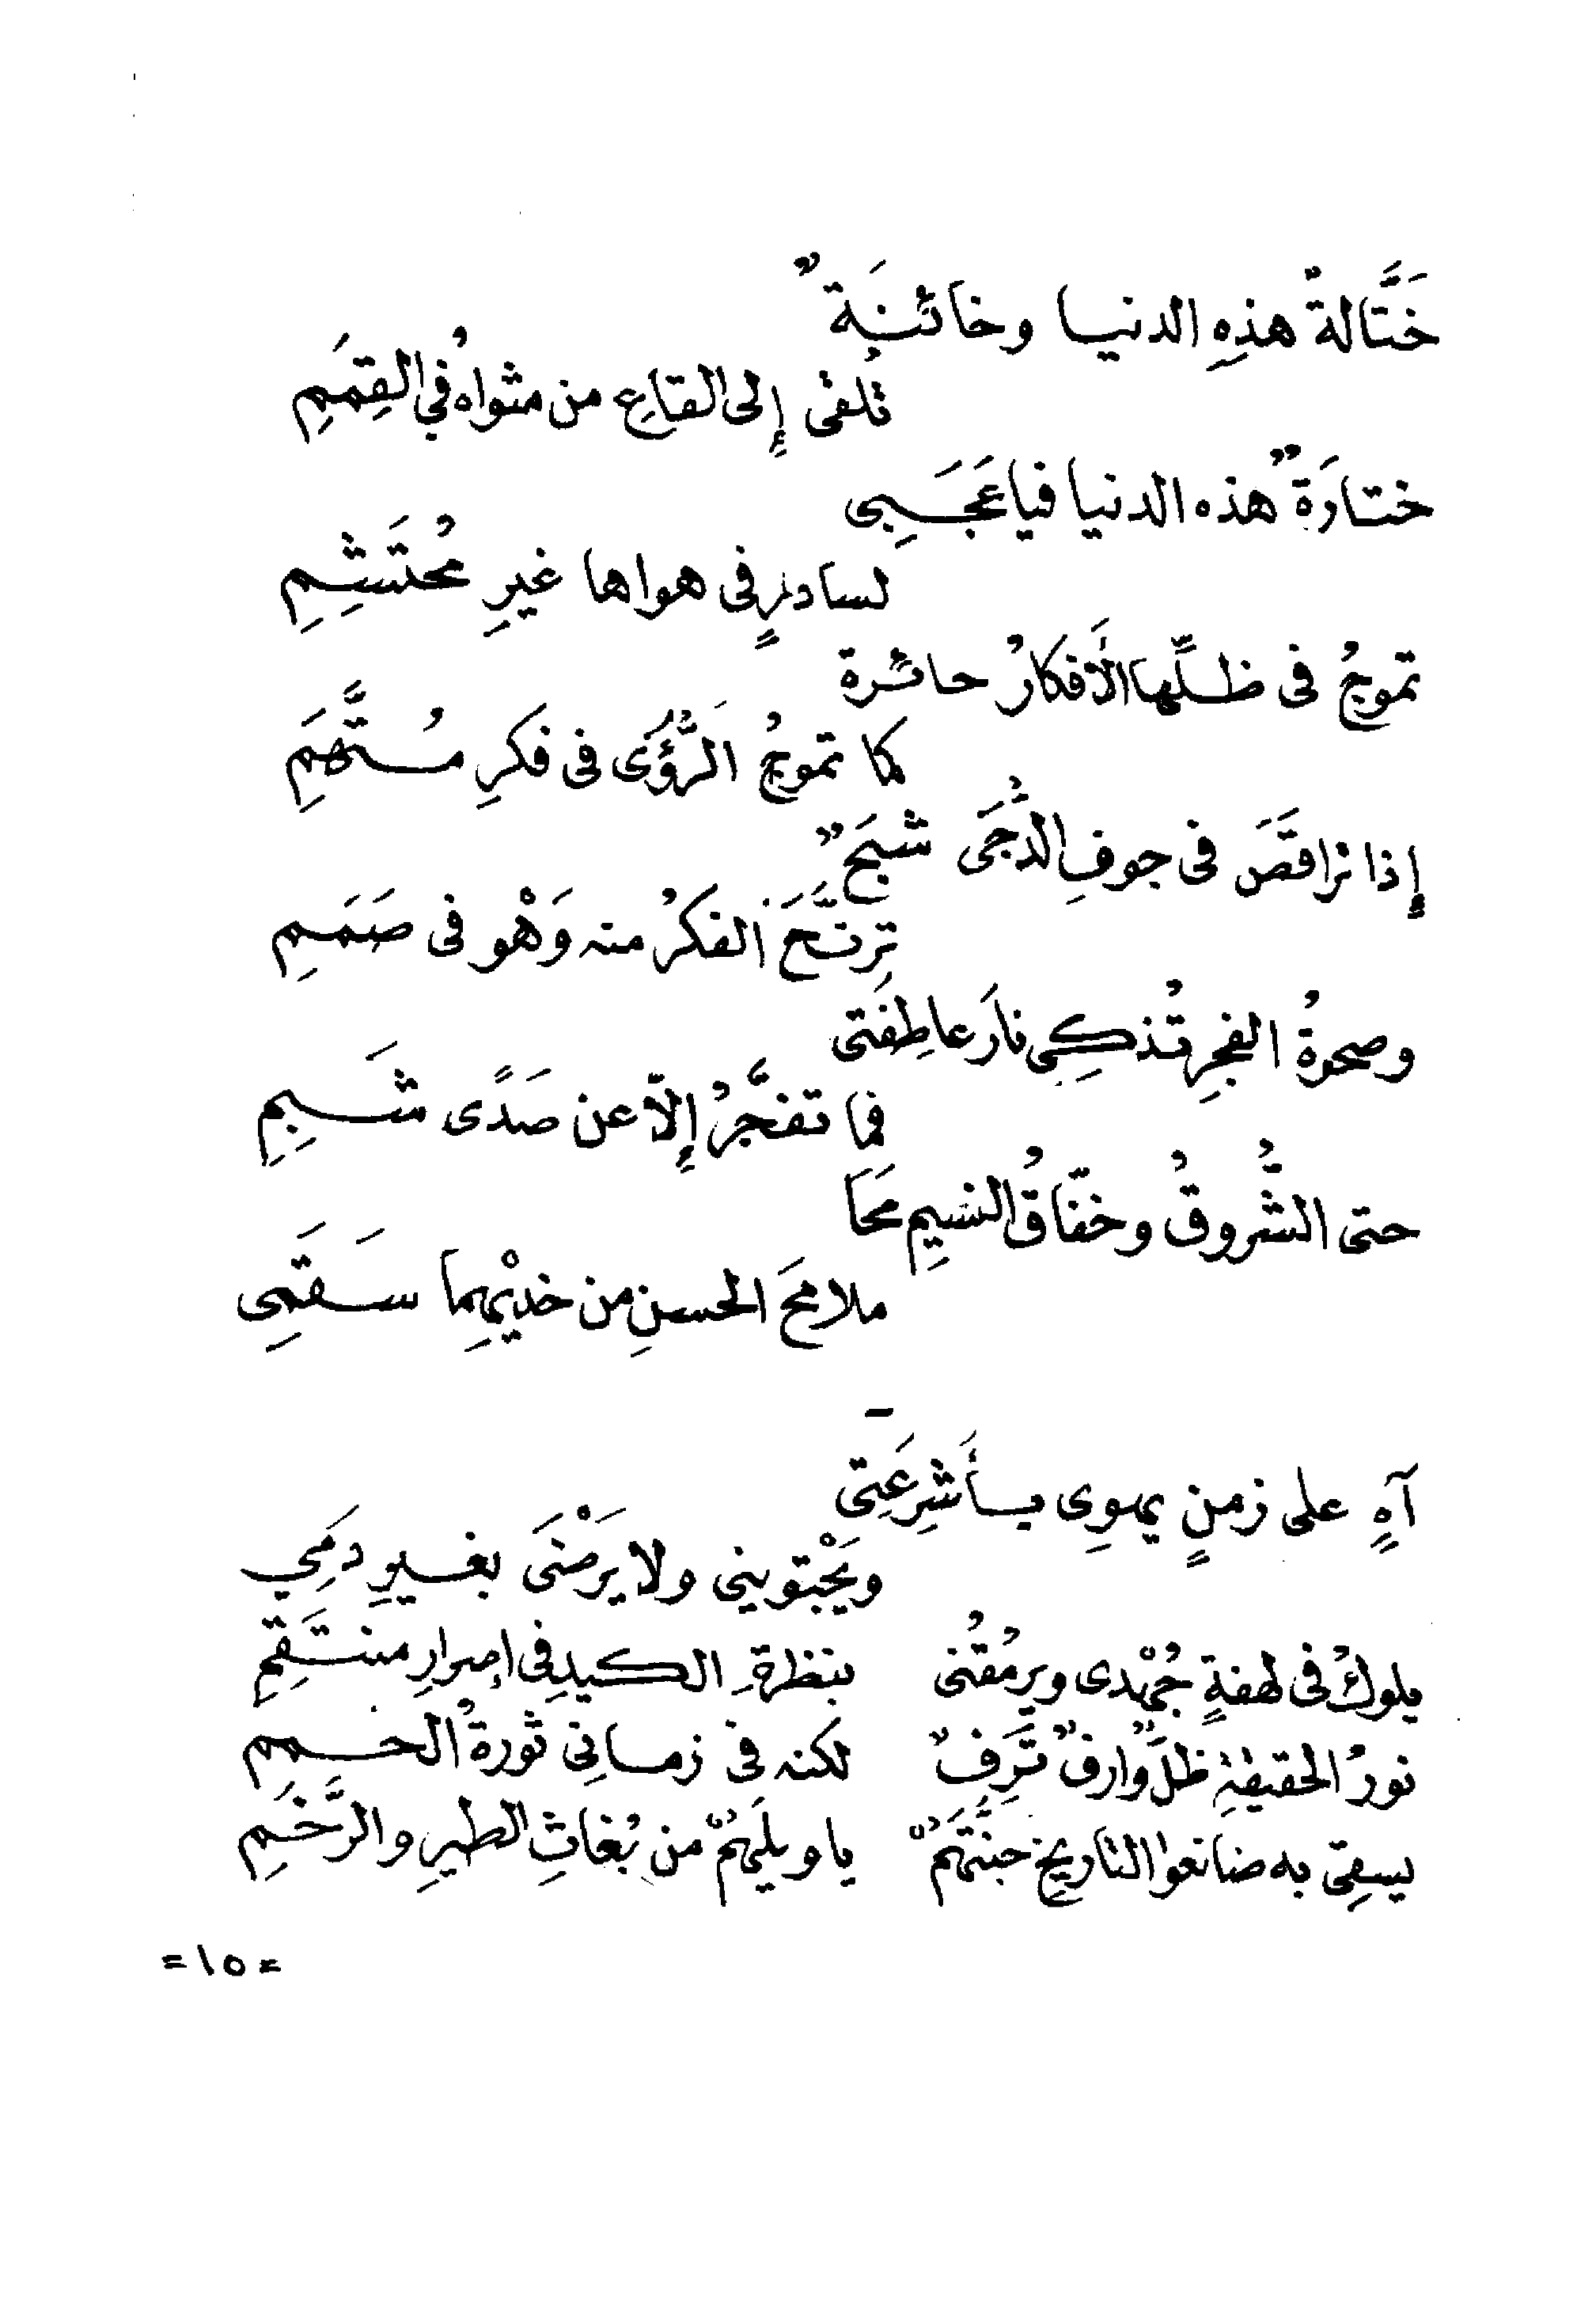 خَتَّالةٌ هذِهِ الدنيا وخائنَةٌ
تُلقى إِلى القاعِ من مثواهُ في القِمَمِ
ختارَةٌ هذه الدنيا فيا عَجَبِى
لسادرٍ فى هواها غيرِ مُحتَشِمِ
تموجُ فى ظلِّها الأَفكارُ حائرة
كما تموجُ الرُّؤَى فى فكرِ مُتَّهَمِ
إِذا تراقَصَ فى جوفِ الدُّجَى شبَحٌ
ترنَّحَ الفكرُ منه وَهْو فى صَمَمِ
وصحوةُ الفجرِ تُذكِى نارَ عاطِفَتى
فما تفجَّرُ إِلاّ عن صَدًى شَبِمِ
حتى الشُّروقُ وخفّاقُ النسيمِ مَحَا
ملامحَ الحسنِ من خديْهِما سَقَمِى
آهٍ على زمنٍ يهوِى بأَشرِعَتِى
ويَجْتوينى ولا يَرْضَى بغيرِ دمِي
يلوكُ فى لهفةٍ جُهْدى ويرمُقُنى بنظرةِ الكيدِ فى إصرارِ منتَقِمِ
نورُ الحقيقةِ ظلٌّ وارفٌ تَرِفٌ لكنه فى زمانِى ثورةُ الحممِ
يسقِى به صانعوا التاريخِ جنَّتَهُمْ يا ويلَهُمْ من بُغاثِ الطيرِ والرَّخَمِ
=١٥=